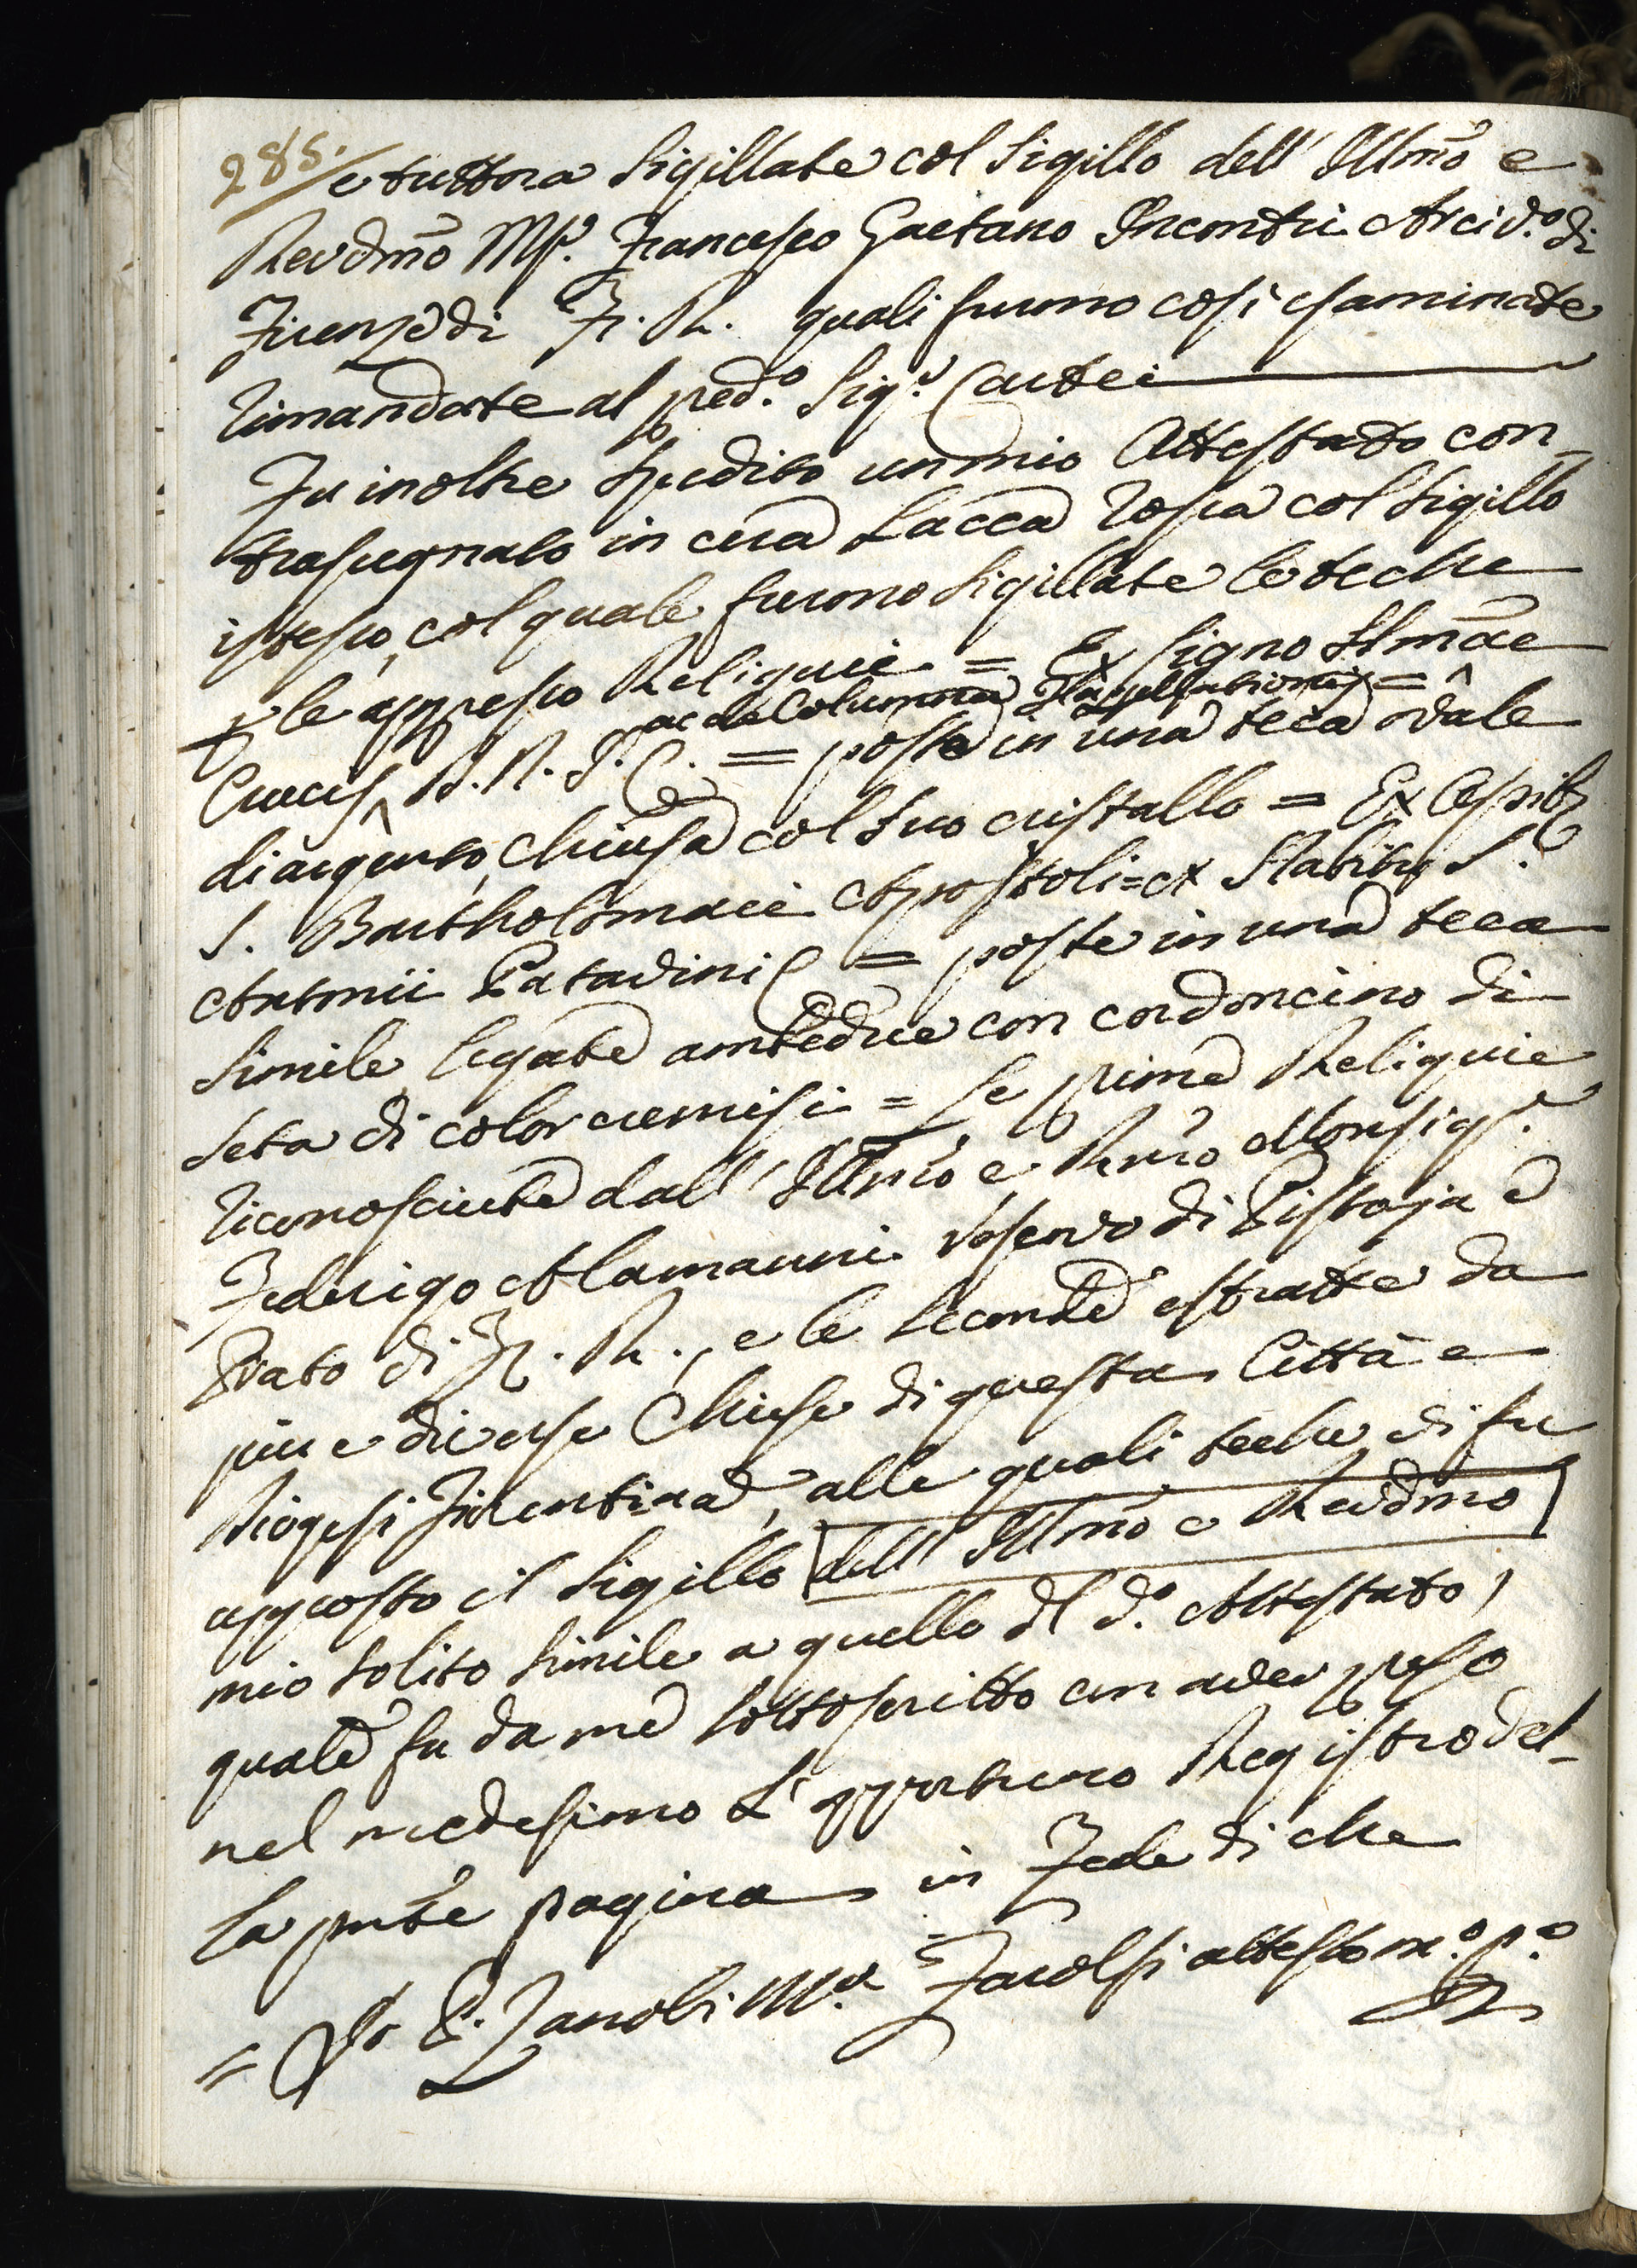 285. e tuttora Sigillate col Sigillo dell' Illmo e
Revdmo Mr. Francesco Gaetano Incontri Arciv.o di
Firenze di F. R. quali furono così esaminate
rimandate al pred.o Sig.r Cartei
Fu inoltre spedito un mio Attestato con-
trasegnato in cera Lacca rossa col Sigillo
istesso, col quale furono Sigillate le teche
p le appresso Reliquie = Ex Signo SSmae
ac de Columna Flagellationis =
Crucis D. N. J. C. = poste in una teca ovale
di argento, chiusa col suo cristallo = Ex Ossibs
S. Bartholomaei Apostoli = ex Stabibus S.
Antonii Patavini = poste in una teca
simile, legate ambedue con cordoncino di
seta di color cremisi = Le prime Reliquie
riconosciute dall' Illmo e Rmo Monsigr.
Federigo Alamanni Vescovo di Pistoja e
Prato di F. R., e le seconde estratte da
piu e diverse Chiese di questa Città e
Diogesi Fiorentina, alle quali teche di fu
apposto il Sigillo dell' Illmo e Revdmo
mio solito simile a quello dl d.o Attestato,
quale fu da me sottoscritto con aver preso
nel medesimo L' opportuno Registro del-
la pnte pagina in Fede di che
= Io P. Zanobi M.a Facolsi attesto m.o p.o